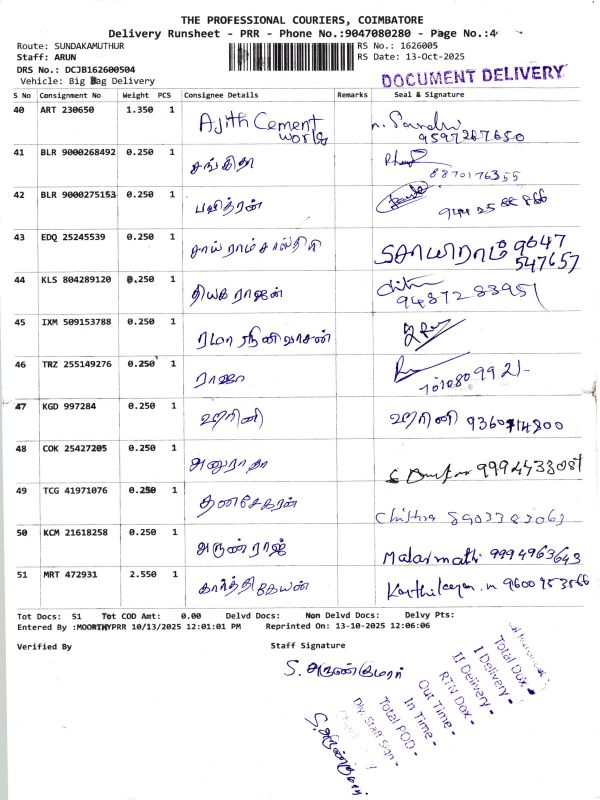 THE PROFESSIONAL COURIERS, COIMBATORE
Delivery Runsheet - PRR - Phone No.:9047080280 - Page No.:4
Route: SUNDAKAMUTHUR
RS No.: 1626005
Staff: ARUN
RS Date: 13-Oct-2025
DRS No.: DCJB162600504
DOCUMENT DELIVERY
Vehicle: Big Bag Delivery
S No Consignment No Weight PCS Consignee Details Remarks Seal & Signature
40 ART 230650 1.350 1 Ajith Cement works
9597267650
41 BLR 9000268492 0.250 1 சங்கீதா
8870176355
42 BLR 9000275153 0.250 1 பவித்ரன்
43 EDQ 25245539 0.250 1 சாய்ராம் சாஸ்திரி
சாயிராம் 9047
547657
44 KLS 804289120 0.250 1 தியாகராஜன்
9487283951
45 IXM 509153788 0.250 1 ரமா ஸ்ரீனிவாசன்
46 TRZ 255149276 0.250 1 ராஜா
47 KGD 997284 0.250 1 ஹரினி ஹரினி 9360714800
48 COK 25427205 0.250 1 அனுராதா
9994433081
49 TCG 41971076 0.250 1 தனசேகரன்
Chithra 8903383063
50 KCM 21618258 0.250 1 அருண் ராஜ்
Malarmathi 9994963643
51 MRT 472931 2.550 1 கார்த்திகேயன் Karthikeyan.n
Tot Docs: 51 Tot COD Amt: 0.00 Delvd Docs: Non Delvd Docs: Delvy Pts:
Entered By :MOORTHYPRR 10/13/2025 12:01:01 PM Reprinted On: 13-10-2025 12:06:06
Verified By
Staff Signature
S. அருண்குமார்
Total Dox -
I Delivery -
II Delivery -
RTN Dox -
Out Time -
In Time -
Total POD -
Dly. Staff Sign -
S. அருண்குமார்